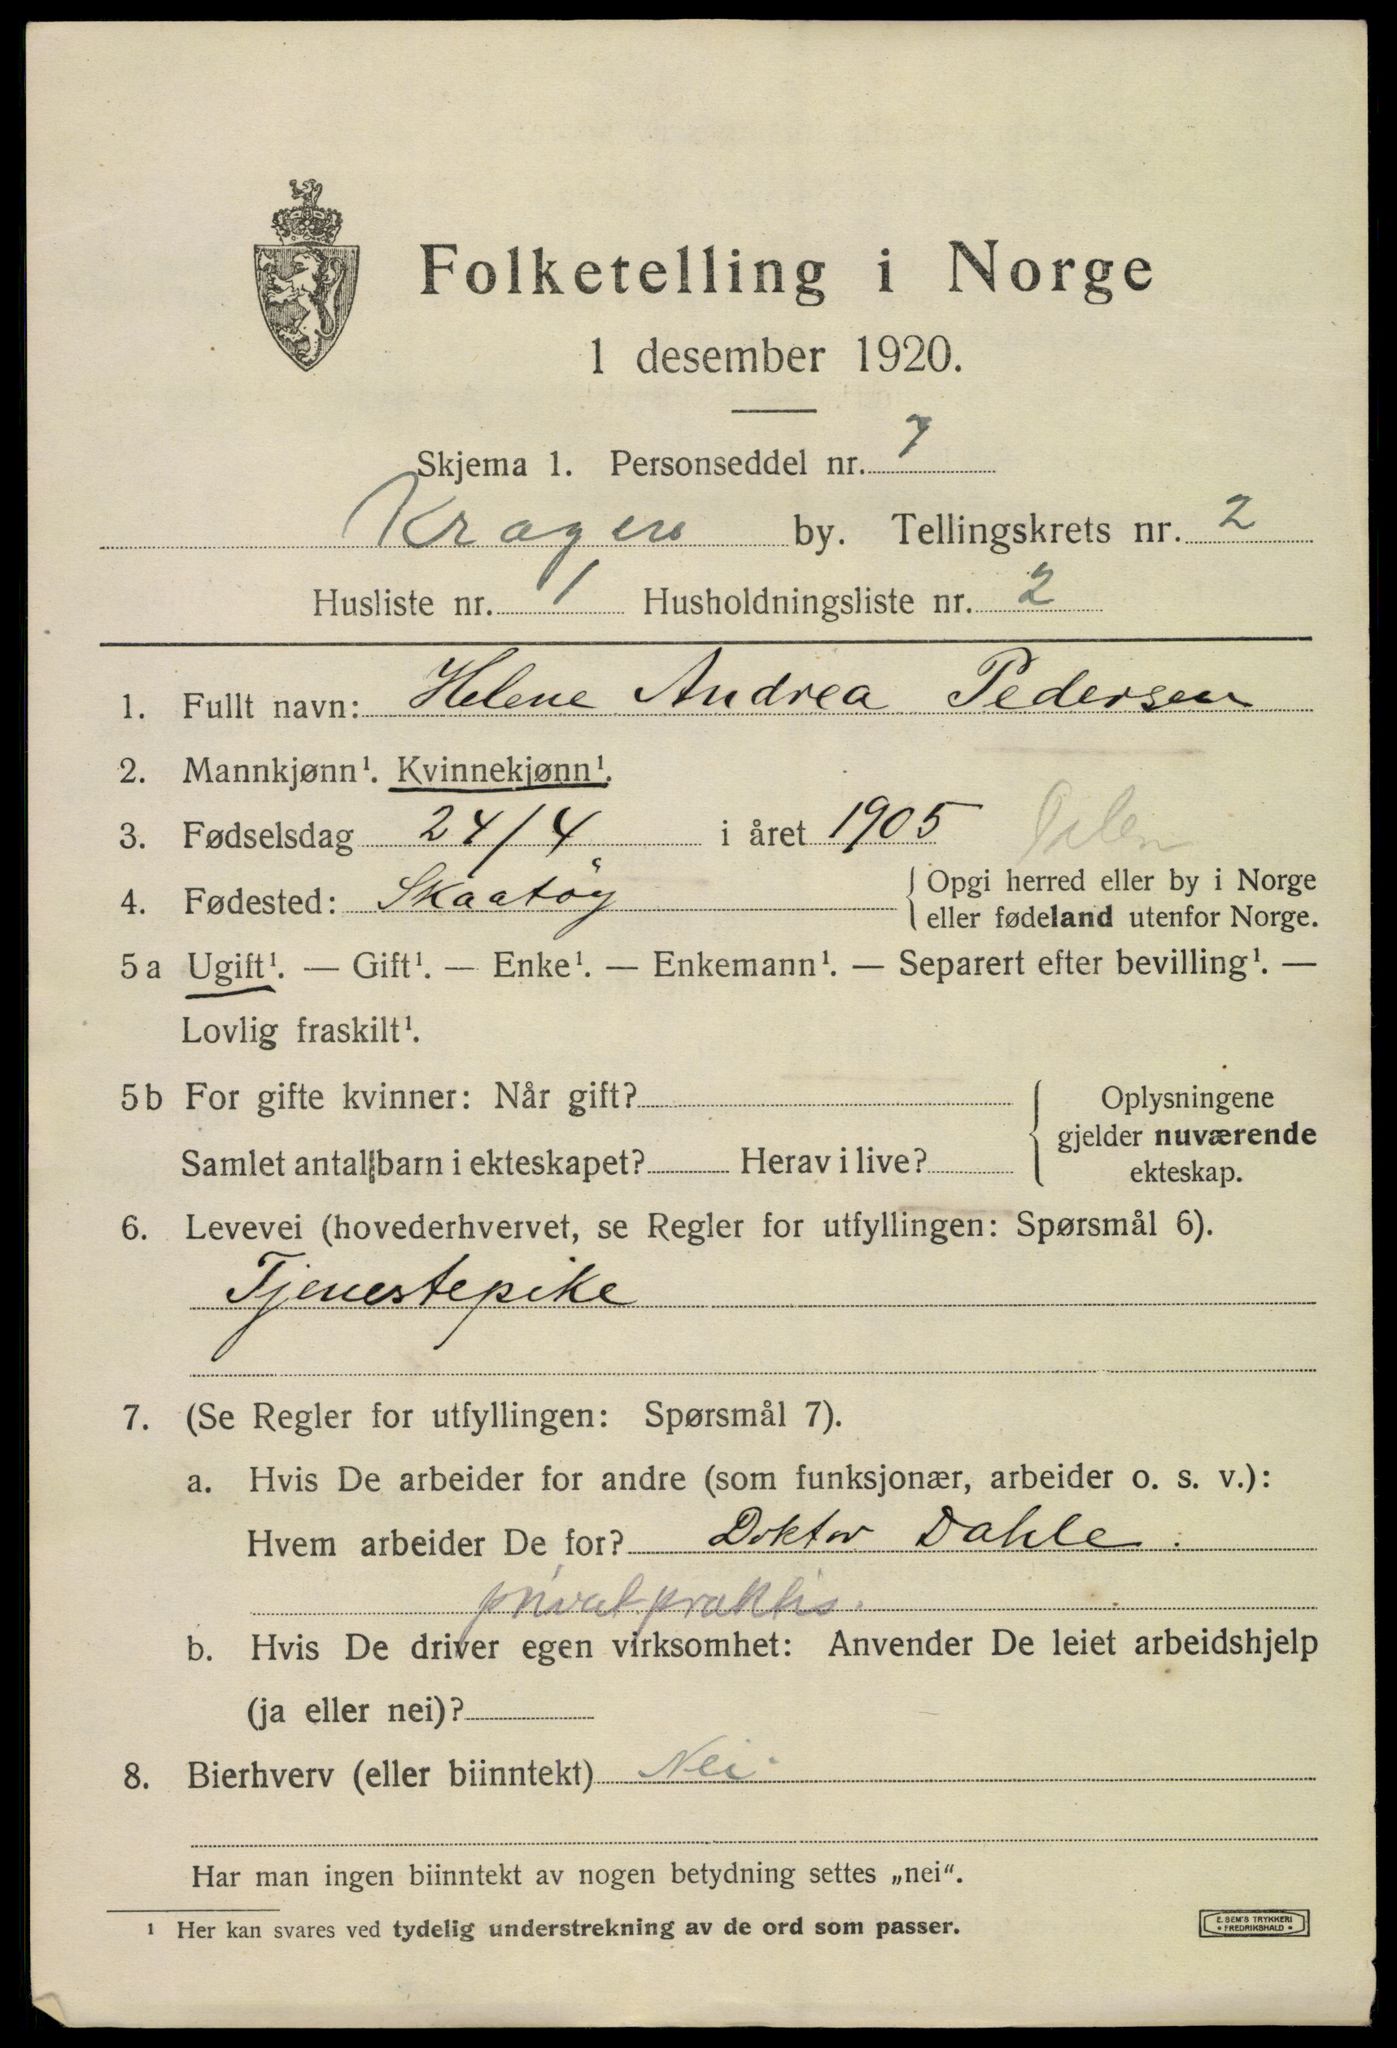 Folketelling i Norge
1 desember 1920.
Skjema 1. Personseddel nr. 7
Kragerø by. Tellingskrets nr. 2
Husliste nr. 1 Husholdningsliste nr. 2
1. Fullt navn: Helene Andrea Pedersen
2. Mannkjønn¹. Kvinnekjønn¹.
3. Fødselsdag 24/4 i året 1905
4. Fødested: Skaatöy { Opgi herred eller by i Norge
eller fødeland utenfor Norge.
5 a Ugift¹. — Gift¹. — Enke¹. — Enkemann¹. — Separert efter bevilling¹. —
Lovlig fraskilt¹.
5 b For gifte kvinner: Når gift?
Samlet antal barn i ekteskapet? Herav i live?
{ Oplysningene
gjelder nuværende
ekteskap.
6. Levevei (hovederhvervet, se Regler for utfyllingen: Spørsmål 6).
Tjenestepike
7. (Se Regler for utfyllingen: Spørsmål 7).
a. Hvis De arbeider for andre (som funksjonær, arbeider o. s. v.):
Hvem arbeider De for? Doktor Dahle.
privat praktis.
b. Hvis De driver egen virksomhet: Anvender De leiet arbeidshjelp
(ja eller nei)?
8. Bierhverv (eller biinntekt) Nei
Har man ingen biinntekt av nogen betydning settes „nei“.
¹ Her kan svares ved tydelig understrekning av de ord som passer.
E. SEM'S TRYKKERI
• FREDRIKSHALD •